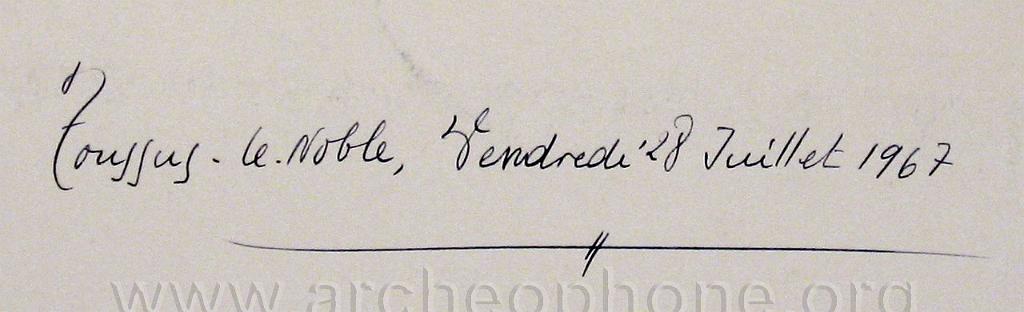 Toussus-le-Noble, Vendredi 28 Juillet 1967
www.archeophone.org